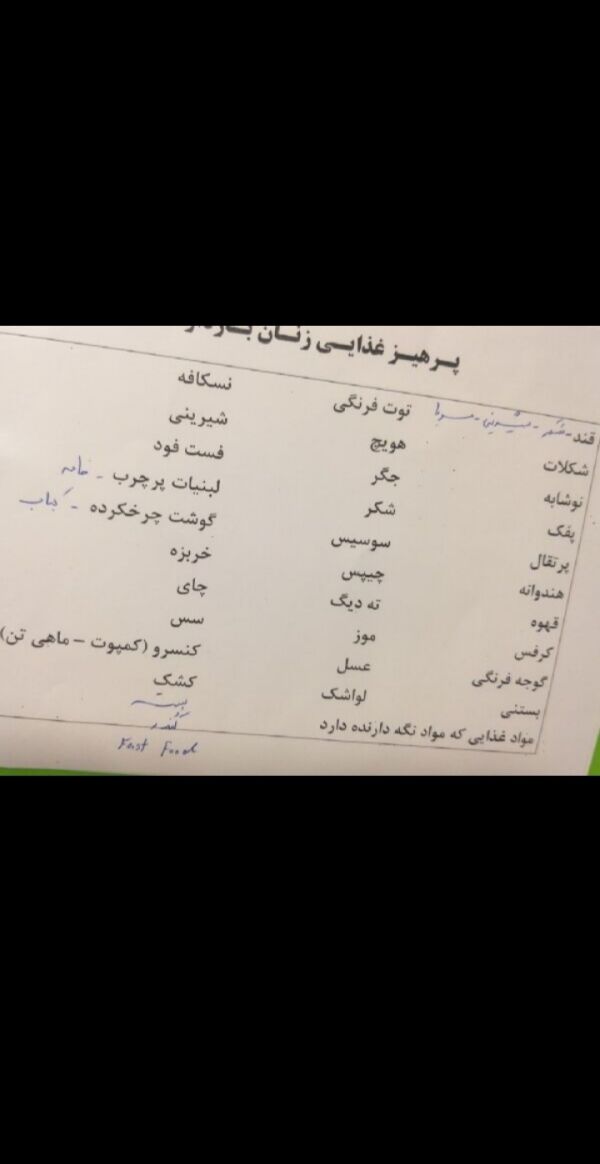 پرهیز غذایی زنان باردار
قند - شکر - شیرینی - مربا توت فرنگی نسکافه
شکلات هویج شیرینی
نوشابه جگر فست فود
پفک شکر لبنیات پرچرب - خامه
پرتقال سوسیس گوشت چرخکرده - کباب
هندوانه چیپس خربزه
قهوه ته دیگ چای
کرفس موز سس
گوجه فرنگی عسل کنسرو (کمپوت - ماهی تن)
بستنی لواشک کشک
مواد غذایی که مواد نگه دارنده دارد
Fast Food